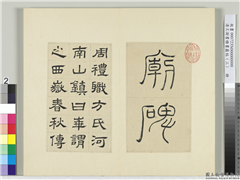 廟碑
周禮職方氏河
南山鎮曰華謂
之西嶽春秋傳